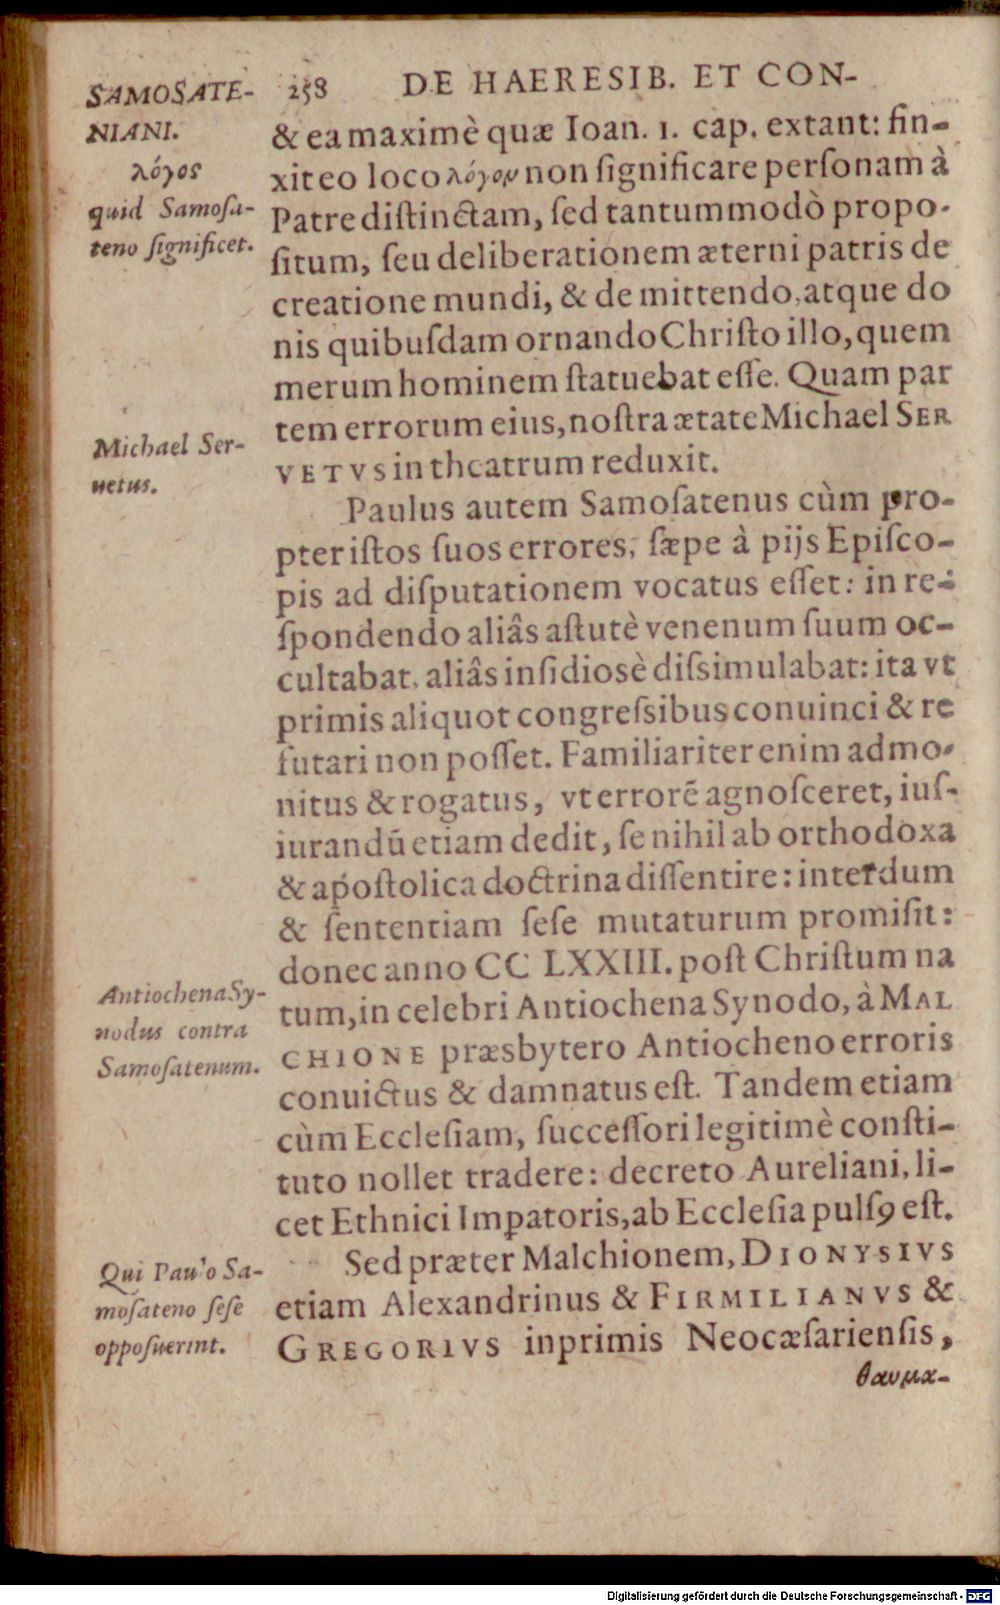 258 DE HAERESIB. ET CON-
SAMOSATE-
NIANI.
λόγος
quid Samoſa-
teno ſignificet.
& ea maximè quæ Ioan. 1. cap. extant: fin-
xit eo loco λόγον non ſignificare perſonam à
Patre diſtinctam, ſed tantummodò propo-
ſitum, ſeu deliberationem æterni patris de
creatione mundi, & de mittendo, atque do
nis quibuſdam ornando Chriſto illo, quem
merum hominem ſtatuebat eſſe. Quam par
tem errorum eius, noſtra ætate Michael SER
VETVS in theatrum reduxit.
Michael Ser-
uetus.
Paulus autem Samoſatenus cùm pro-
pter iſtos ſuos errores, ſæpe à pijs Epiſco-
pis ad diſputationem vocatus eſſet: in re-
ſpondendo aliâs aſtutè venenum ſuum oc-
cultabat, aliâs inſidiosè diſsimulabat: ita vt
primis aliquot congreſsibus conuinci & re
futari non poſſet. Familiariter enim admo-
nitus & rogatus, vt errorẽ agnoſceret, iuſ-
iurandũ etiam dedit, ſe nihil ab orthodoxa
& apoſtolica doctrina diſſentire: interdum
& ſententiam ſeſe mutaturum promiſit:
donec anno CC LXXIII. poſt Chriſtum na
tum, in celebri Antiochena Synodo, à MAL
CHIONE præsbytero Antiocheno erroris
conuictus & damnatus eſt. Tandem etiam
cùm Eccleſiam, ſucceſſori legitimè conſti-
tuto nollet tradere: decreto Aureliani, li-
cet Ethnici Imꝑatoris, ab Eccleſia pulſꝯ eſt.
Antiochena Sy-
nodus contra
Samoſatenum.
Sed præter Malchionem, DIONYSIVS
etiam Alexandrinus & FIRMILIANVS &
GREGORIVS inprimis Neocæſarienſis,
Qui Paulo Sa-
moſateno ſeſe
oppoſuerint.
θαυμα-
Digitalisierung gefördert durch die Deutsche Forschungsgemeinschaft - DFG